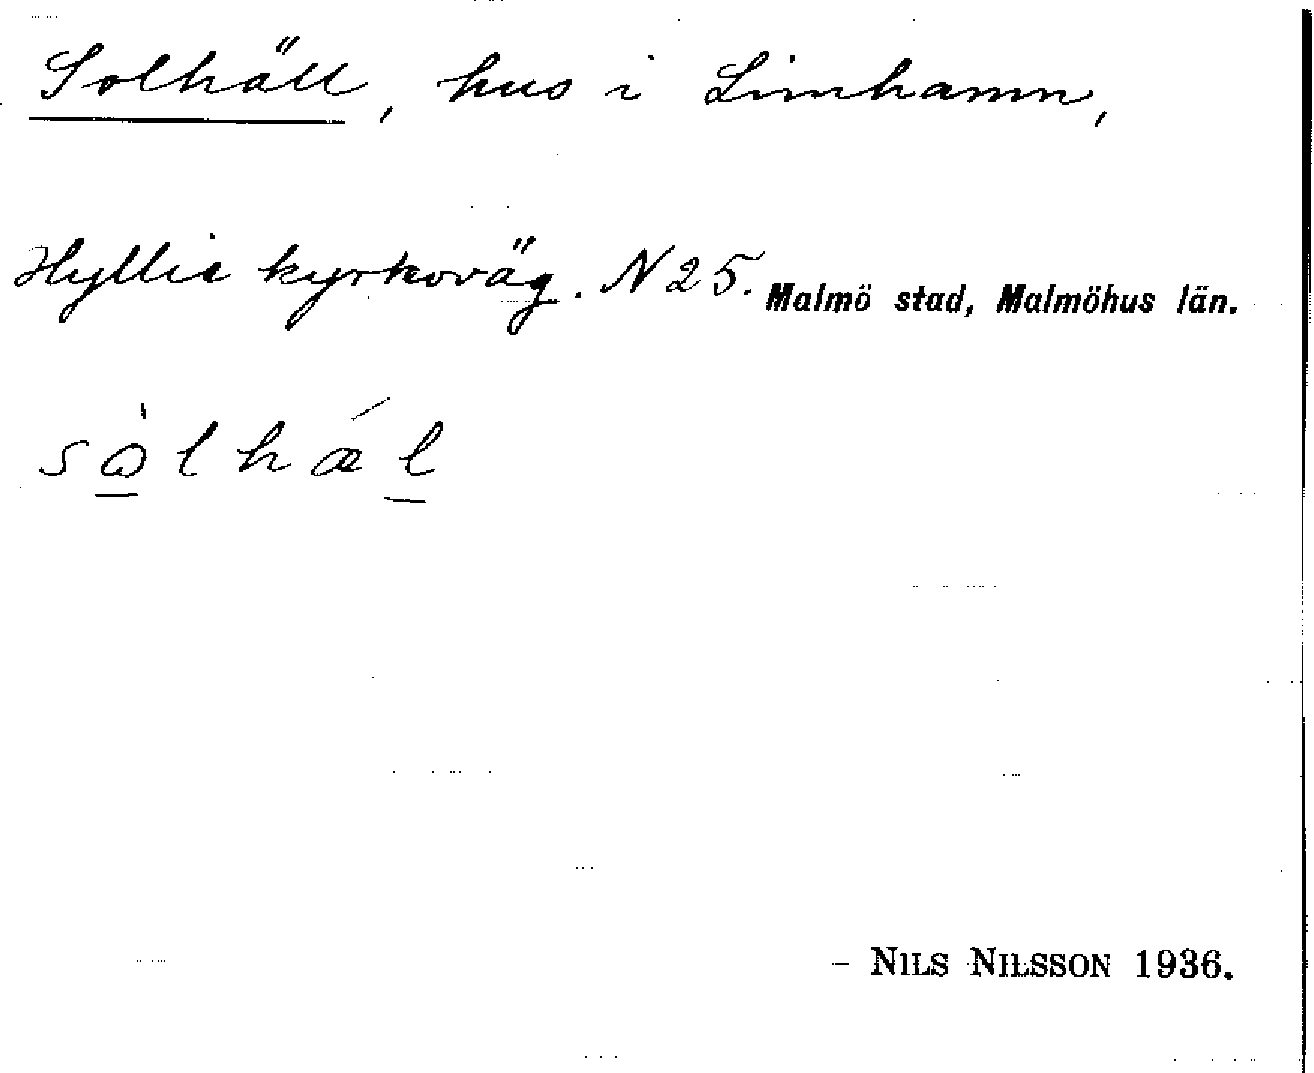 Solhäll, hus i Limhamn,
Hyllie kyrkoväg. N 25. Malmö stad, Malmöhus län.
sòlhǽl
– NILS NILSSON 1936.